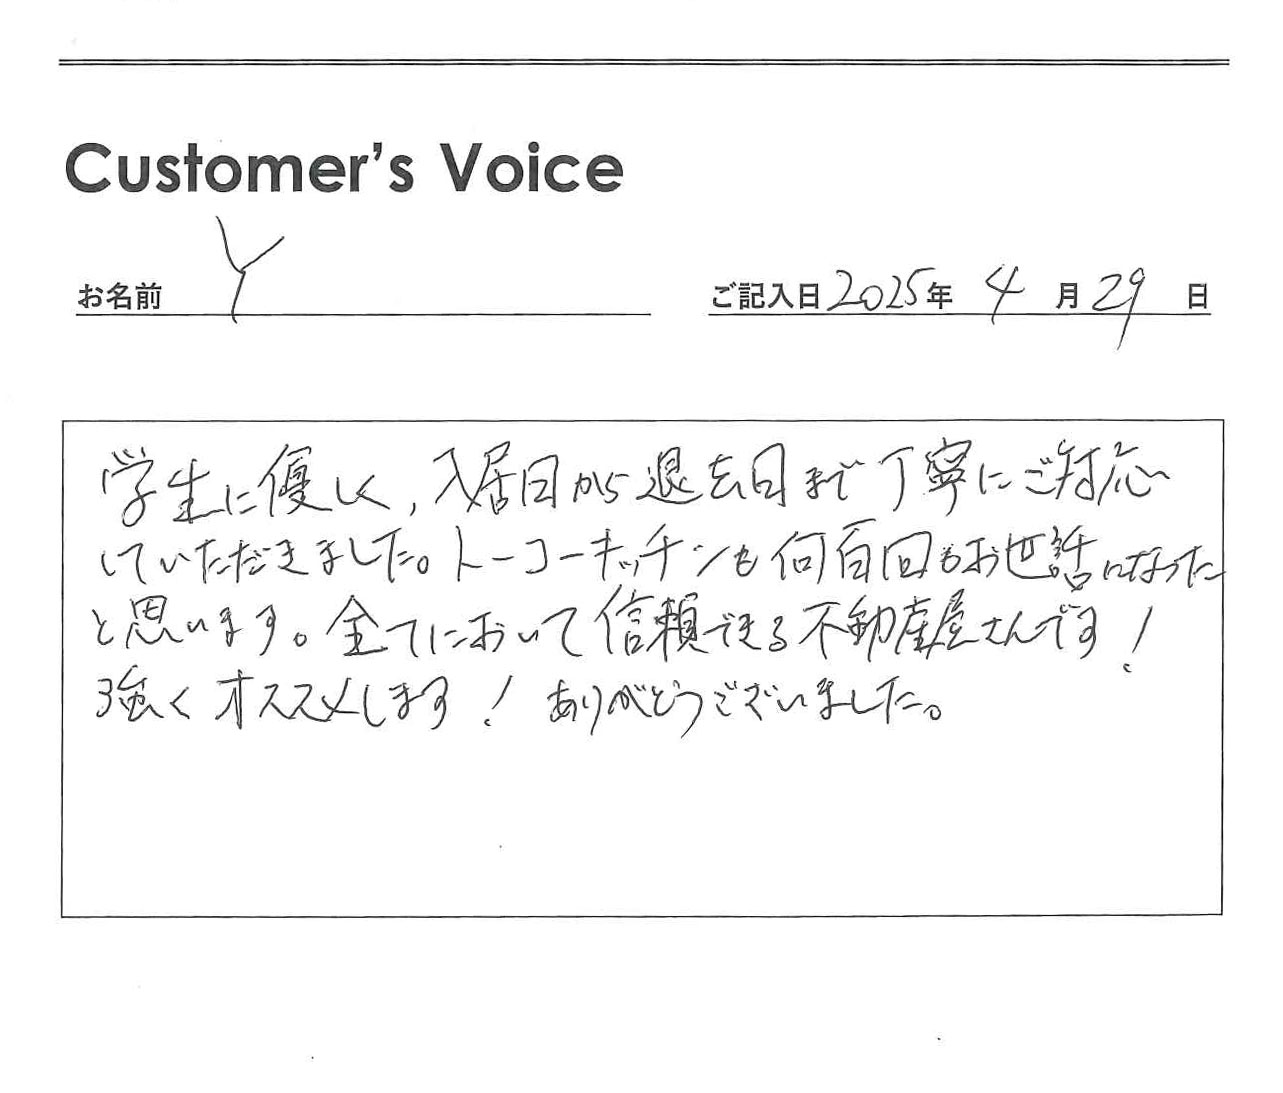 Customer's Voice
お名前 Y ご記入日 2025年 4月 29日
学生に優しく,入居日から退去日まで丁寧にご対応
していただきました。トーコーキッチンも何百回もお世話になった
と思います。全てにおいて信頼できる不動産屋さんです!
強くオススメします! ありがとうございました。